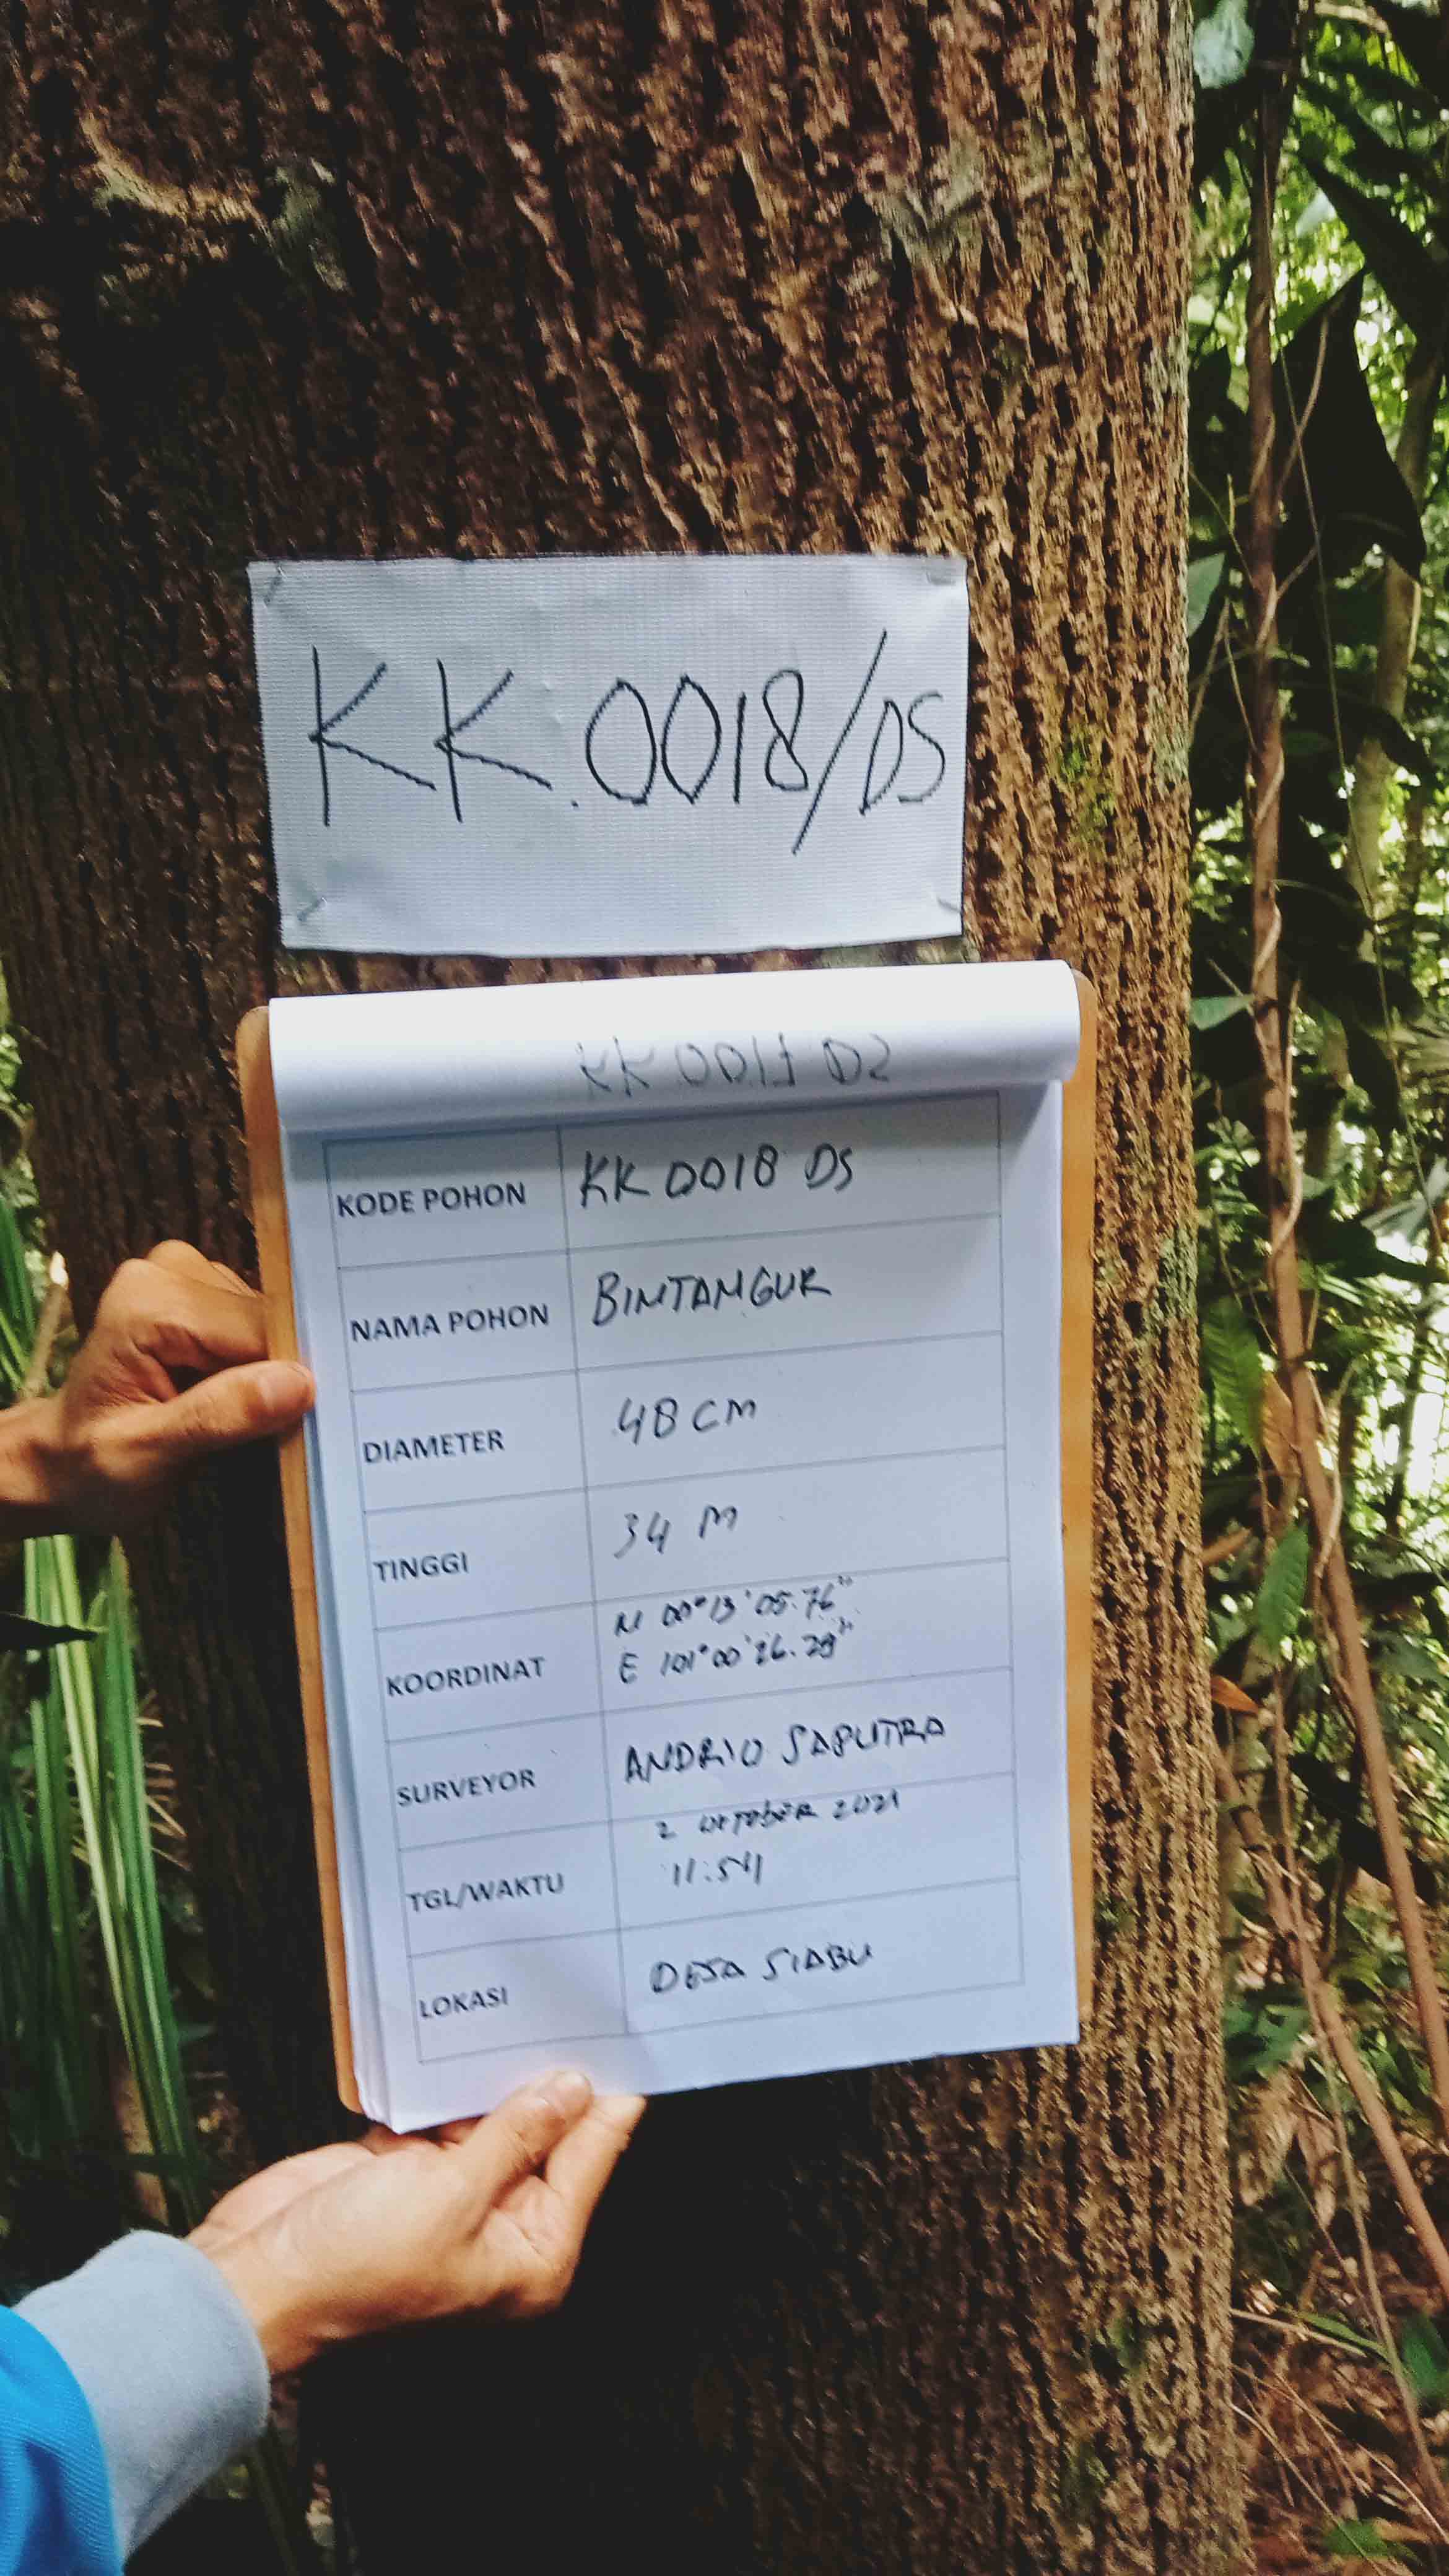 KK.0018/DS
KK 0017 DS
KODE POHON KK 0018 DS
NAMA POHON BINTANGUR
DIAMETER 48 CM
TINGGI 34 M
KOORDINAT N 00°13'05.76"
E 101°00'26.28"
SURVEYOR ANDRIO SAPUTRA
TGL/WAKTU 2 OKTOBER 2021
11:54
LOKASI DESA SIABU